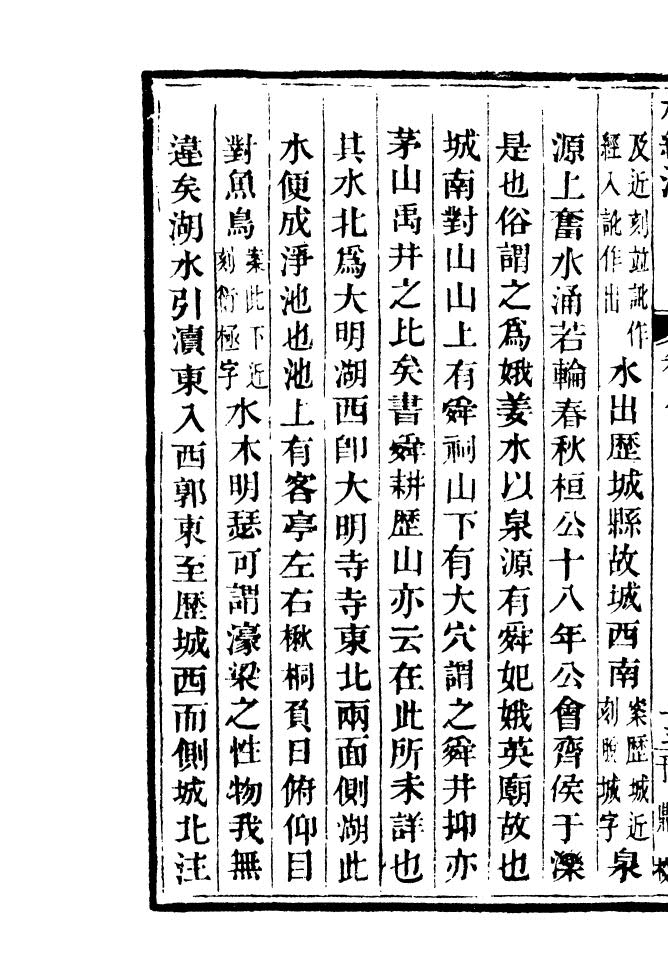 及近刻並訛作經入訛作出水出歷城縣故城西南案歷城近刻脫城字泉
源上奮水涌若輪春秋桓公十八年公會齊侯于濼
是也俗謂之爲娥姜水以泉源有舜妃娥英廟故也
城南對山山上有舜祠山下有大穴謂之舜井抑亦
茅山禹井之比矣書舜耕歷山亦云在此所未詳也
其水北爲大明湖西卽大明寺寺東北兩面側湖此
水便成淨池也池上有客亭左右楸桐負日俯仰目
對魚鳥案此下近刻衍極字水木明瑟可謂濠梁之性物我無
違矣湖水引瀆東入西郭東至歷城西而側城北注